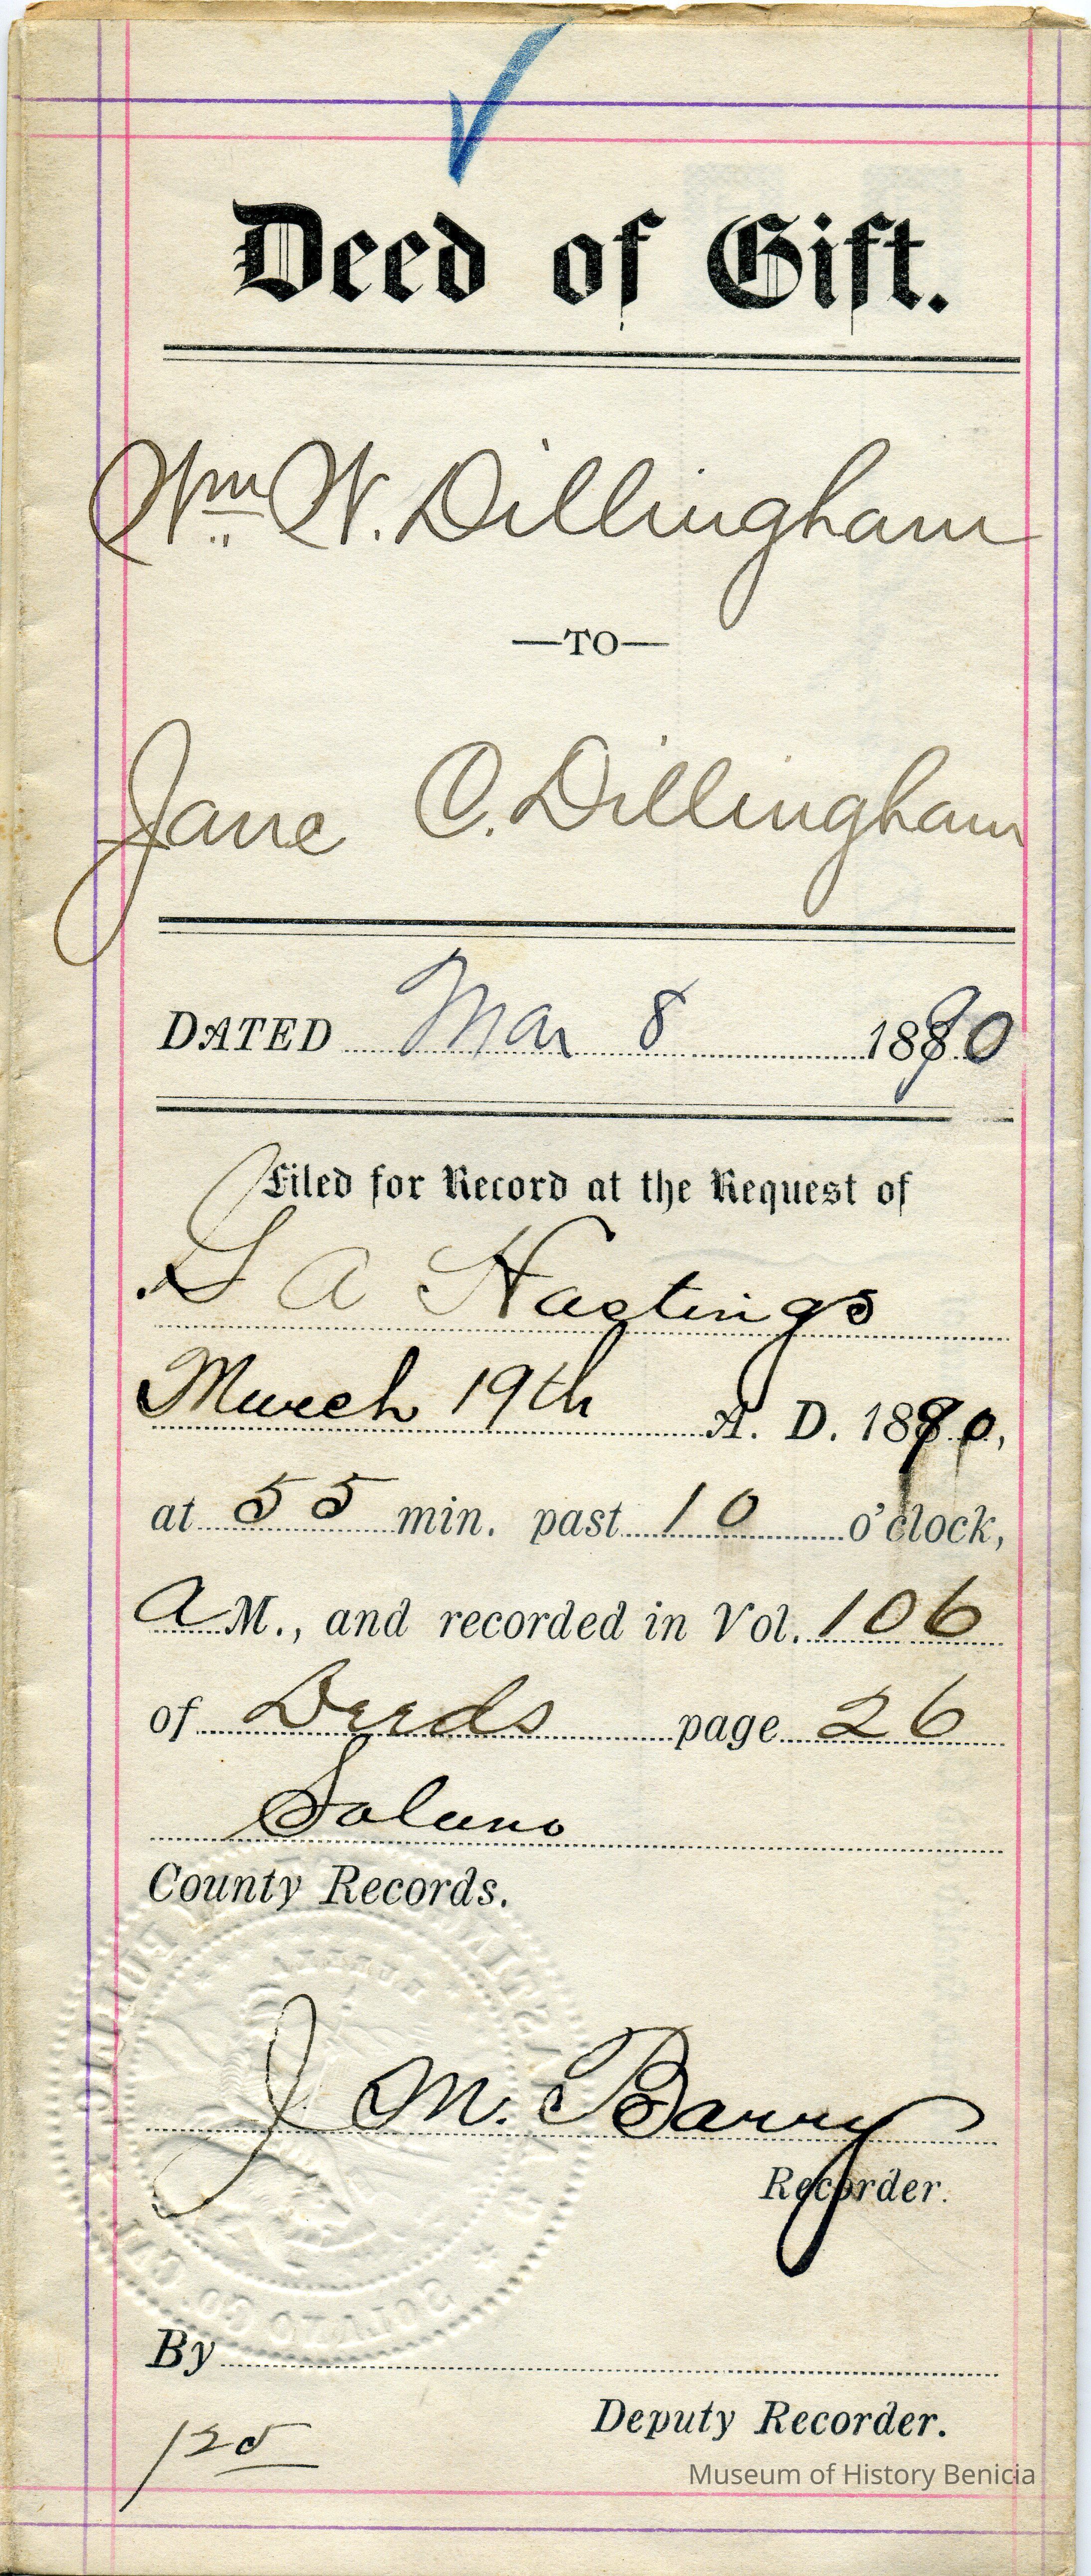 Deed of Gift.
Wm. W. Dillingham
—TO—
Jane C. Dillingham
DATED Mar 8 1890
Filed for Record at the Request of
S A Hastings
March 19th A. D. 1890,
at 55 min. past 10 o'clock,
A M., and recorded in Vol. 106
of Deeds page 26
Solano
County Records.
J M. Barry
Recorder.
SOLANO CO. CAL.
By
Deputy Recorder.
120
Museum of History Benicia